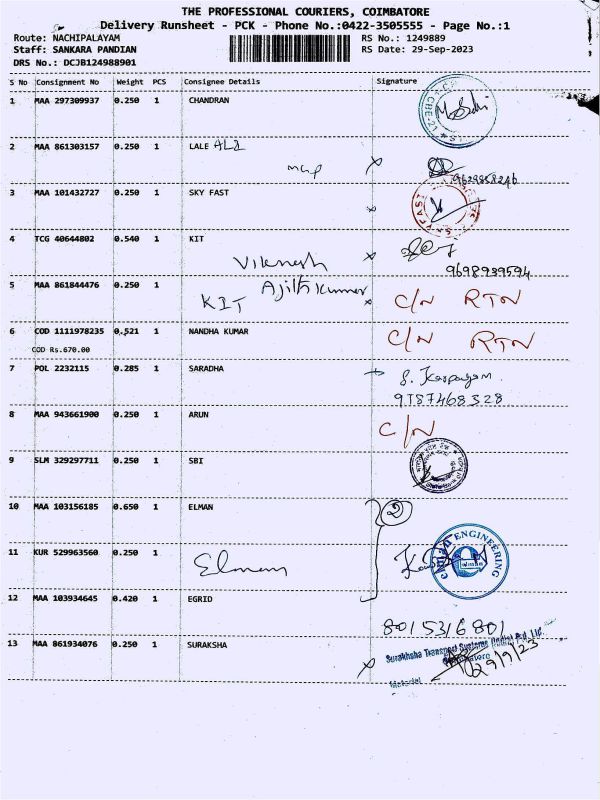 THE PROFESSIONAL COURIERS, COIMBATORE
Delivery Runsheet - PCK - Phone No.:0422-3505555 - Page No.:1
Route: NACHIPALAYAM RS No.: 1249889
Staff: SANKARA PANDIAN RS Date: 29-Sep-2023
DRS No.: DCJB124988901
S No Consignment No Weight PCS Consignee Details Signature
1 MAA 297309937 0.250 1 CHANDRAN
2 MAA 861303157 0.250 1 LALE
3 MAA 101432727 0.250 1 SKY FAST
4 TCG 40644802 0.540 1 KIT
Viknesh 9698939594
5 MAA 861844476 0.250 1 Ajith kumar
KIT C/N RTN
6 COD 1111978235 0.521 1 NANDHA KUMAR C/N RTN
COD Rs.670.00
7 POL 2232115 0.285 1 SARADHA S. Karpagam
9787468328
8 MAA 943661900 0.250 1 ARUN C/N
9 SLM 329297711 0.250 1 SBI
10 MAA 103156185 0.650 1 ELMAN 2
11 KUR 529963560 0.250 1 Elman ENGINEERING
12 MAA 103934645 0.420 1 EGRID
8015316801
13 MAA 861934076 0.250 1 SURAKSHA Surakhsha Transport Systems (India) Pvt. Ltd.
29/9/23